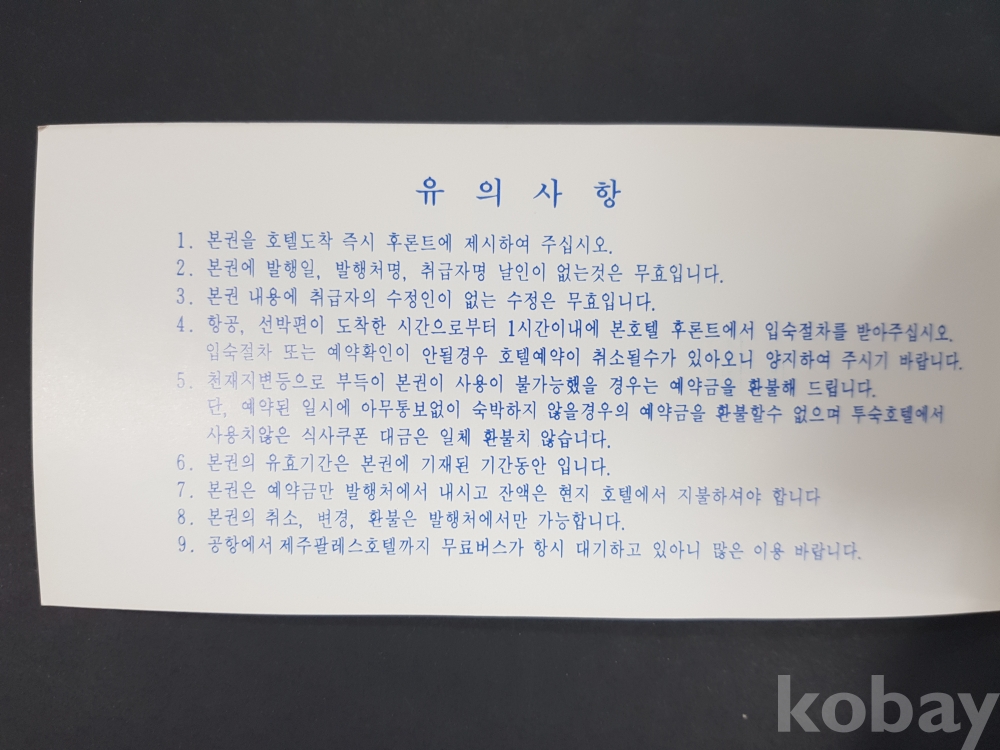 유 의 사 항
1. 본권을 호텔도착 즉시 후론트에 제시하여 주십시오.
2. 본권에 발행일, 발행처명, 취급자명 날인이 없는것은 무효입니다.
3. 본권 내용에 취급자의 수정인이 없는 수정은 무효입니다.
4. 항공, 선박편이 도착한 시간으로부터 1시간이내에 본호텔 후론트에서 입숙절차를 받아주십시오.
입숙절차 또는 예약확인이 안될경우 호텔예약이 취소될수가 있아오니 양지하여 주시기 바랍니다.
5. 천재지변등으로 부득이 본권이 사용이 불가능했을 경우는 예약금을 환불해 드립니다.
단, 예약된 일시에 아무통보없이 숙박하지 않을경우의 예약금을 환불할수 없으며 투숙호텔에서
사용치않은 식사쿠폰 대금은 일체 환불치 않습니다.
6. 본권의 유효기간은 본권에 기재된 기간동안 입니다.
7. 본권은 예약금만 발행처에서 내시고 잔액은 현지 호텔에서 지불하셔야 합니다
8. 본권의 취소, 변경, 환불은 발행처에서만 가능합니다.
9. 공항에서 제주팔레스호텔까지 무료버스가 항시 대기하고 있아니 많은 이용 바랍니다.
kobay